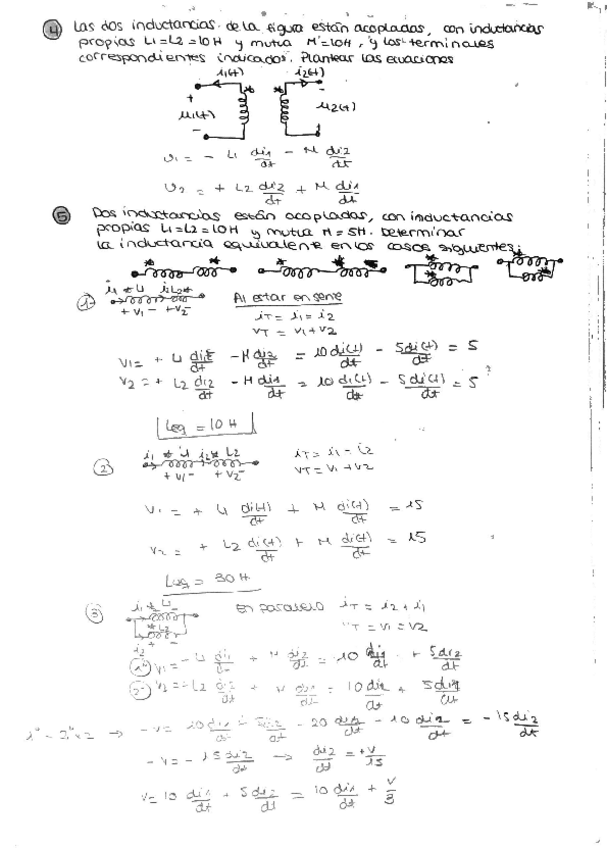 ④ Las dos inductancias de la figura están acopladas, con inductancias
propias L1=L2=10H y mutua M=10H, y los terminales
correspondientes indicados. Plantear las ecuaciones
i1(t) i2(t)
+ * * +
u1(t) u2(t)
- -
v1 = - L1 di1/dt - M di2/dt
v2 = + L2 di2/dt + M di1/dt
⑤ Dos inductancias están acopladas, con inductancias
propias L1=L2=10H y mutua M=5H. Determinar
la inductancia equivalente en los casos siguientes:
① i1 * L1 i2 L2 *
+ v1 - + v2 -
Al estar en serie
iT = i1 = i2
VT = V1 + V2
V1 = + L1 di1/dt - M di2/dt = 10 di(t)/dt - 5 di(t)/dt = 5
V2 = + L2 di2/dt - M di1/dt = 10 di(t)/dt - 5 di(t)/dt = 5 ?
Leq = 10 H
② i1 * L i2 * L2
+ v1 - + v2 -
iT = i1 - i2
VT = V1 + V2
V1 = + L1 di(t)/dt + M di(t)/dt = 15
V2 = + L2 di(t)/dt + M di(t)/dt = 15
Leq = 30 H
③ i1 * L1
* L2
i2 + -
en paralelo iT = i2 + i1
VT = V1 = V2
1ª V1 = - L1 di1/dt + M di2/dt = 10 di1/dt + 5 di2/dt
2ª V2 = - L2 di2/dt + M di1/dt = 10 di2/dt + 5 di1/dt
1ª - 2ª x2 → - v = 10 di1/dt - 20 di2/dt - 10 di1/dt = - 15 di2/dt
- v = - 15 di2/dt → di2/dt = + v/15
v = 10 di1/dt + 5 di2/dt = 10 di1/dt + v/3